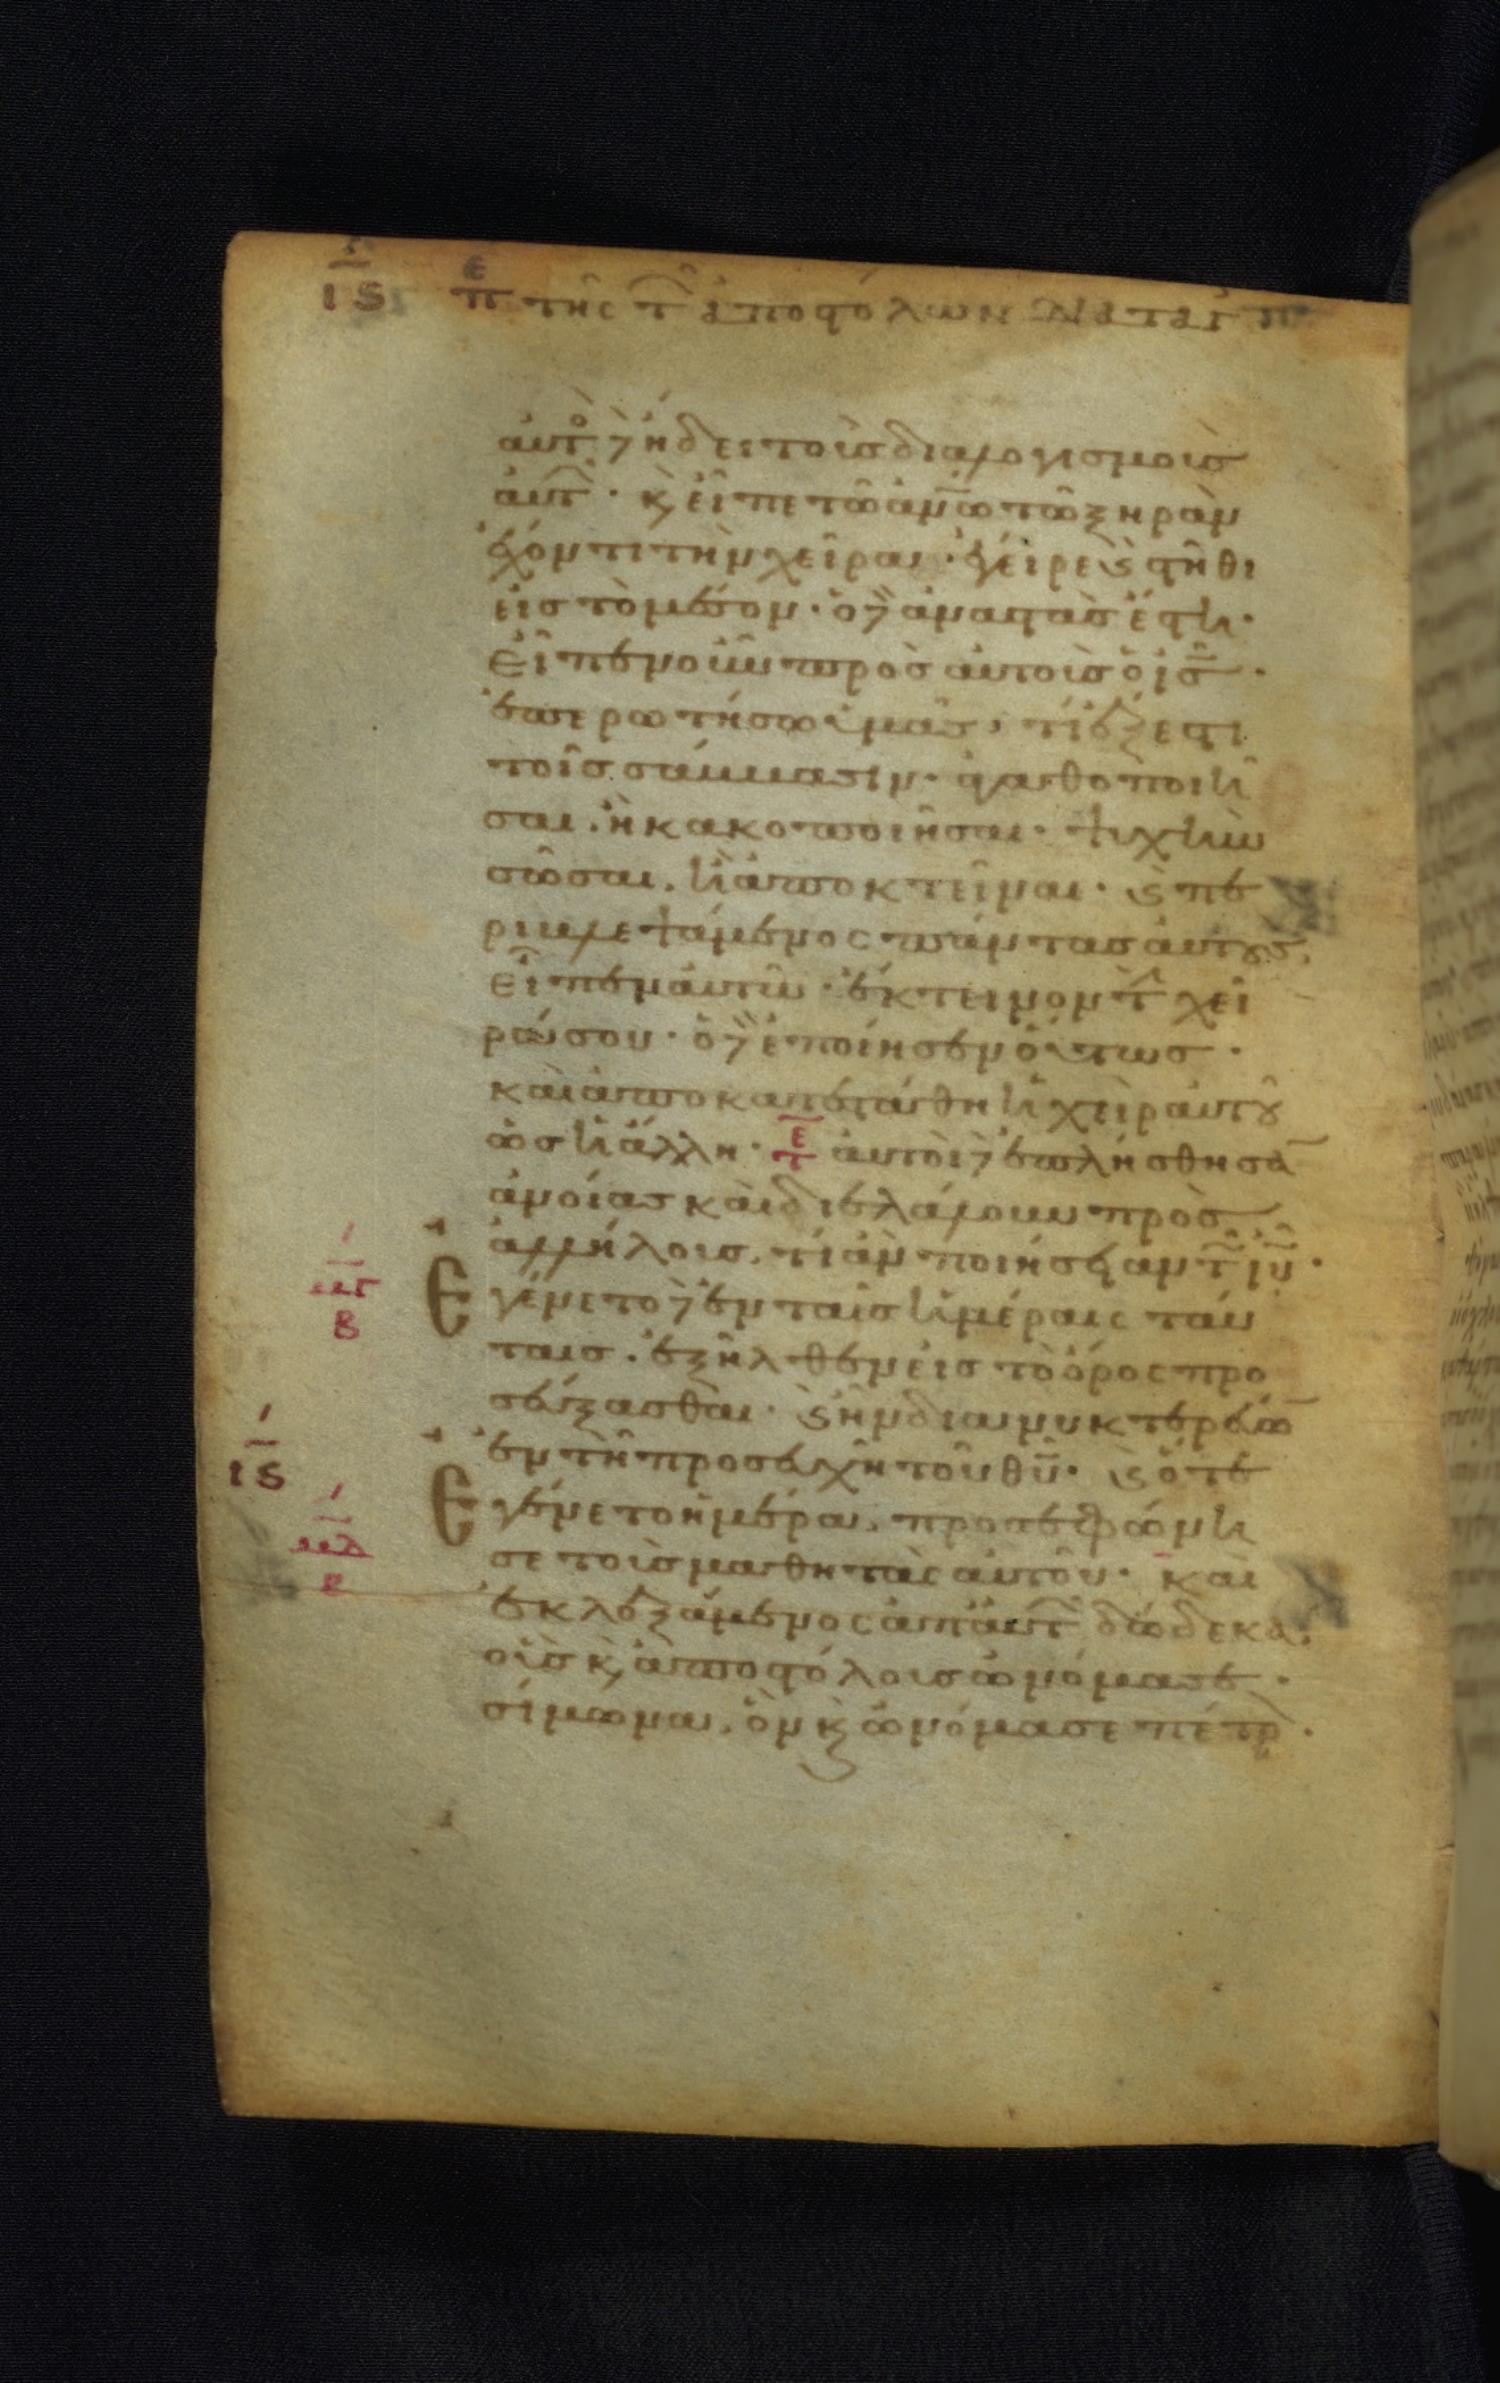 ιϛ περὶ τῆς τῶν ἀποστόλων διαταγῆς
αὐτὸς δὲ ἤδει τοὺς διαλογισμοὺς
αὐτῶν· καὶ εἶπε τῶ ἀνω τῶ ξηρὰν
ἔχοντι τὴν χεῖρα· ἔγειρε καὶ στῆθι
εἰς τὸ μέσον· ὁ δὲ ἀναστὰς ἔστη·
εἶπεν οὖν πρὸς αὐτοὺς ὁ ις·
ἐπερωτήσω ὑμᾶς, τί ἔξεστι
τοῖς σάββασιν· ἀγαθοποιῆ
σαι. ἢ κακοποιῆσαι· ψυχὴν
σῶσαι. ἢ ἀποκτεῖναι· καὶ πε
ριβλεψάμενος πάντας αὐτοὺς,
εἶπεν αὐτῶ· ἔκτεινον τὴν χεῖ
ρά σου· ὁ δὲ ἐποίησεν οὕτως·
καὶ ἀποκατεστάθη ἡ χεὶρ αὐτοῦ
ὡς ἡ ἄλλη· τε αὐτοὶ δὲ ἐπλήσθησαν
ἀνοίας καὶ διελάλουν πρὸς
ἀλλήλους. τί ἂν ποιήσειαν τῶ ιυ·
Εγένετο δὲ ἐν ταῖς ἡμέραις ταύ
ταις. ἐξῆλθεν εἰς τὸ ὄρος προ
σεύξασθαι· καὶ ἦν διανυκτερεύων
ἐν τῆ προσευχῆ τοῦ θυ· καὶ ὅτε
Εγένετο ἡμέρα, προσεφώνη
σε τοὺς μαθητὰς αὐτοῦ· καὶ
ἐκλεξάμενος ἀπ' αὐτῶν δώδεκα.
οὓς καὶ ἀποστόλους ὠνόμασε·
σίμωνα, ὃν καὶ ὠνόμασε πέτρον·
ιϛ